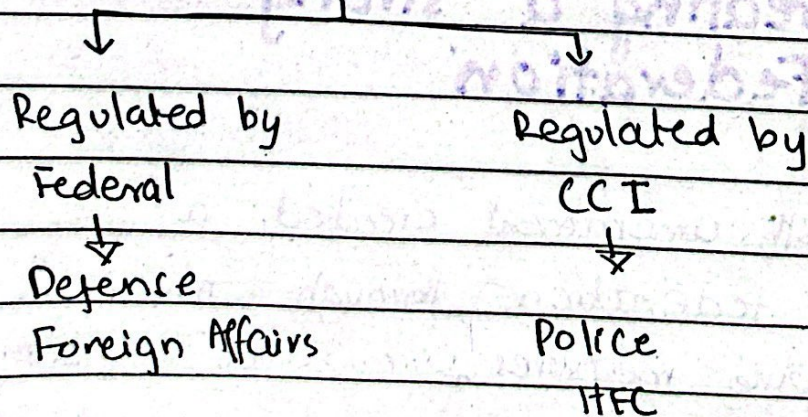 Regulated by
Federal
Defense
Foreign Affairs
Regulated by
CCI
Police
HEC